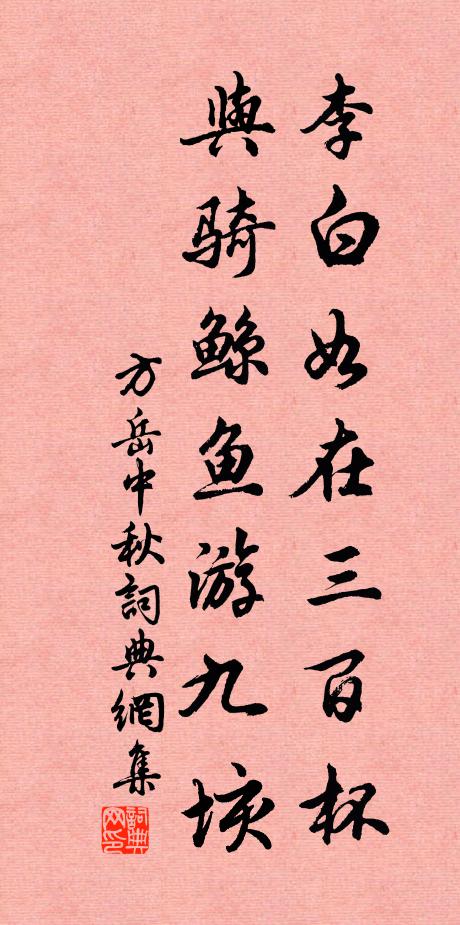 李白如在三百杯
與騎鯨魚游九垓
方岳中秋詞典網集
詞典网印